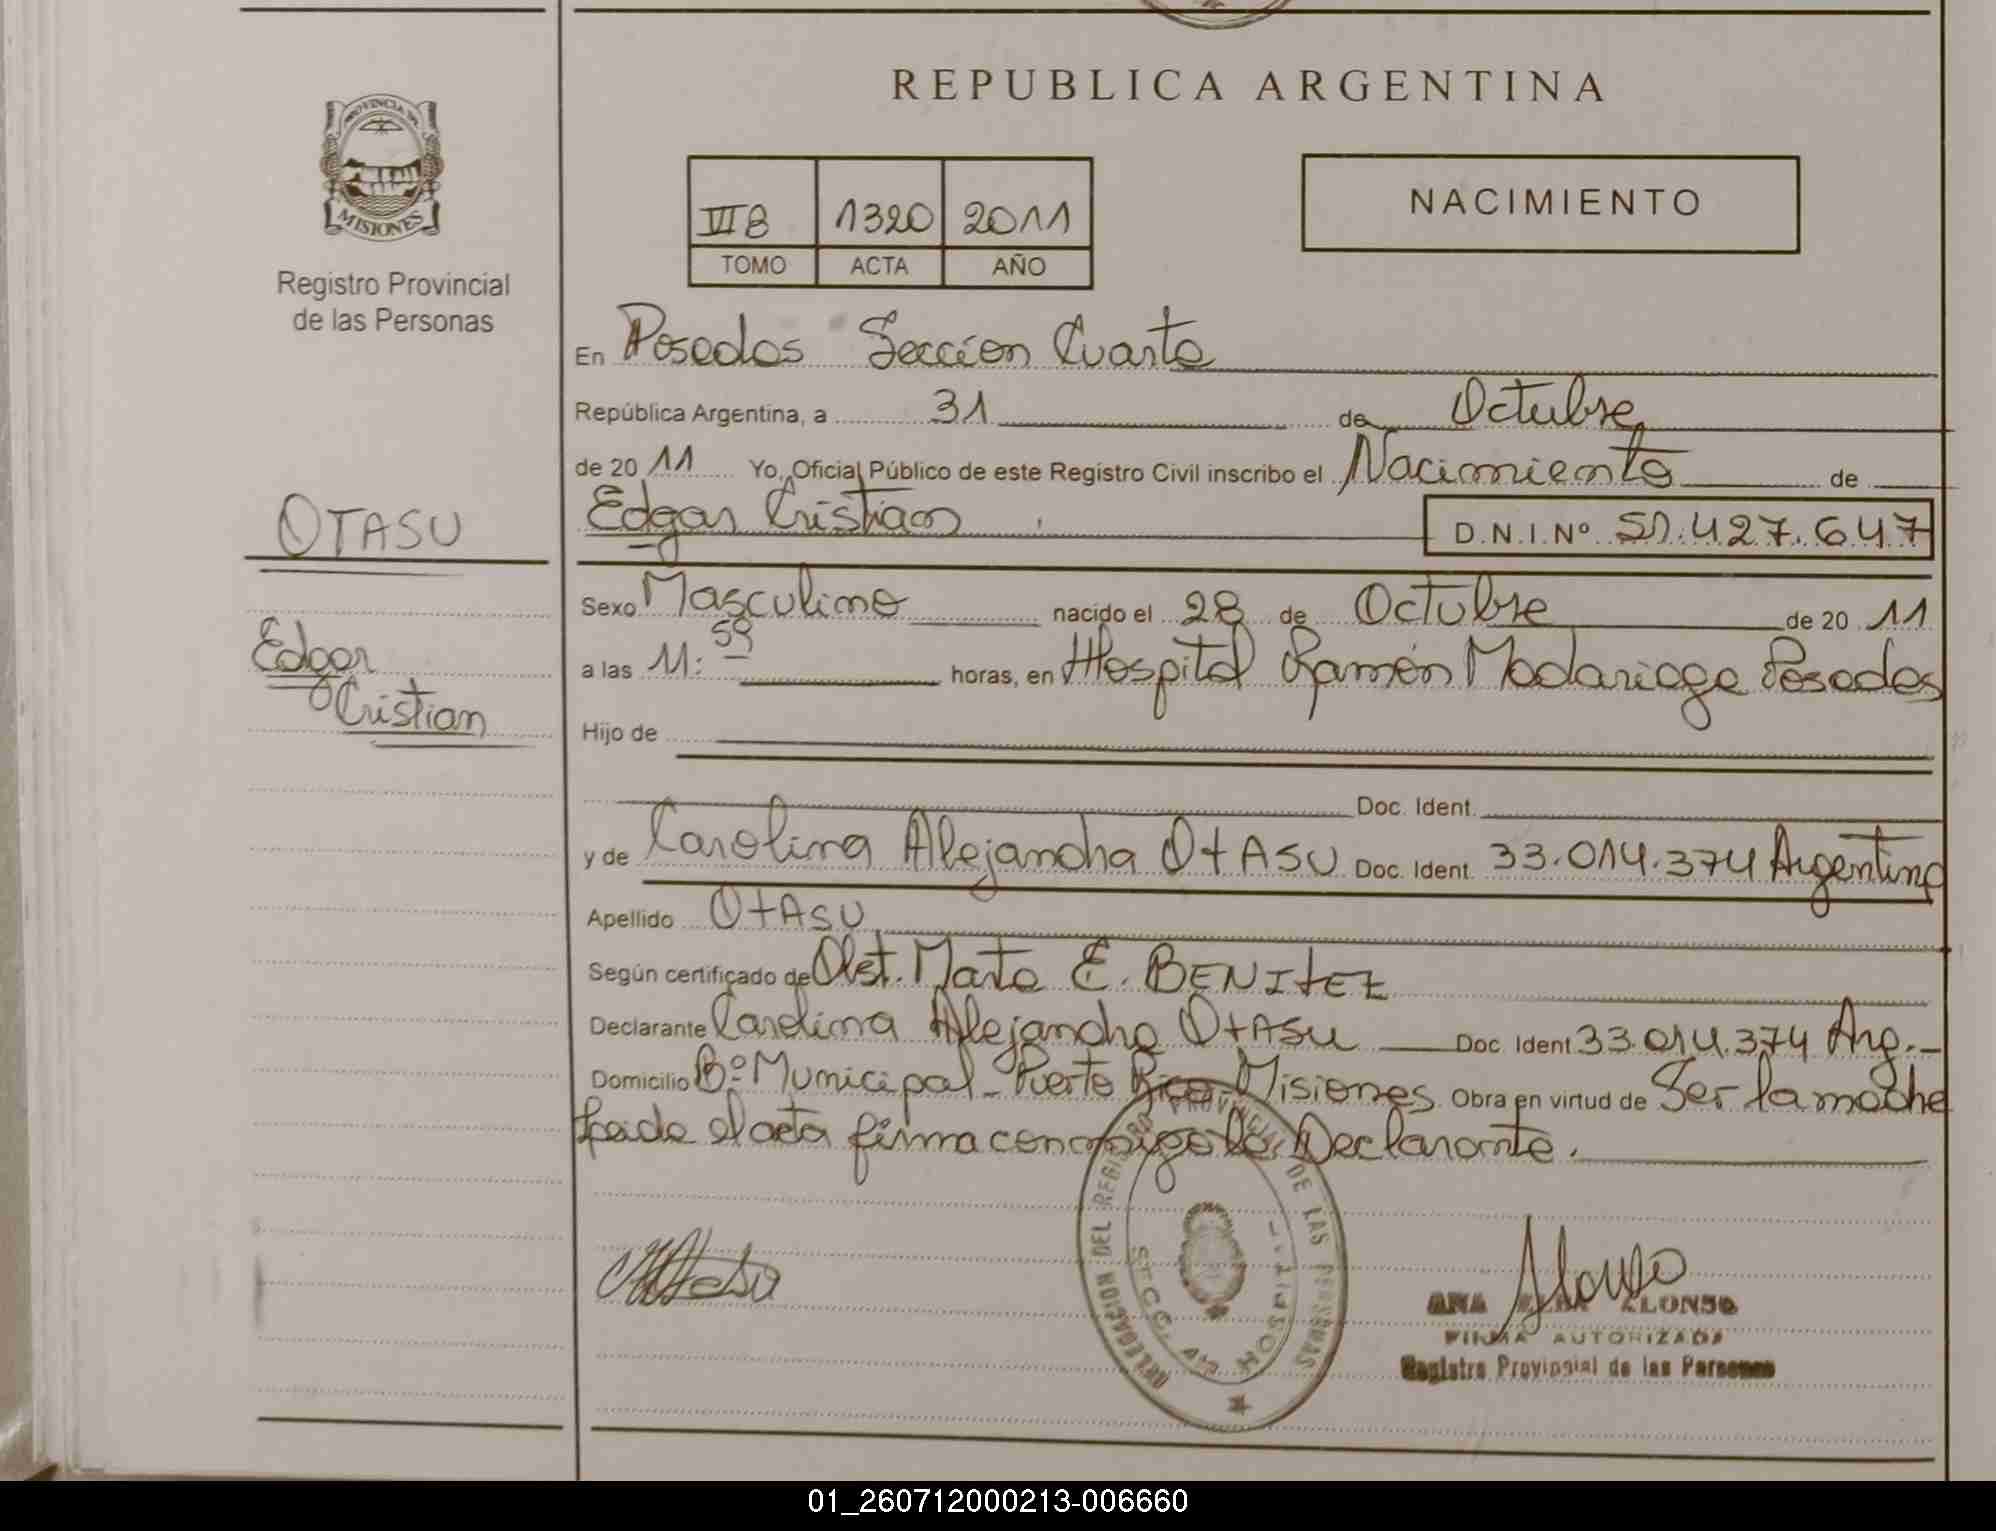 REPUBLICA ARGENTINA
PROVINCIA DE
MISIONES
Registro Provincial
de las Personas
VII B 1320 2011
TOMO ACTA AÑO
NACIMIENTO
En Posadas Sección Cuarta
República Argentina, a 31 de Octubre
de 20 11 Yo, Oficial Público de este Registro Civil inscribo el Nacimiento de
Edgar Cristian D.N.I.Nº 51.427.647
OTASU
Edgar
Cristian
Sexo Masculino nacido el 28 de Octubre de 20 11
a las 11:59 horas, en Hospital Ramón Madariaga Posadas
Hijo de
Doc. Ident.
y de Carolina Alejandra OtASU Doc. Ident. 33.014.374 Argentina
Apellido OtASU
Según certificado de Obst. Marta E. BENItEZ
Declarante Carolina Alejandra OtASU Doc. Ident 33.014.374 Arg.
Domicilio Bº Municipal - Puerto Rico - Misiones Obra en virtud de Ser la madre
leida el acta firma conmigo la Declarante.
DELEGACION DEL REGISTRO PROVINCIAL DE LAS PERSONAS
SECC. 4ta HOSPITAL
ANA ALONSO
FIRMA AUTORIZADA
Registro Provincial de las Personas
01_260712000213-006660